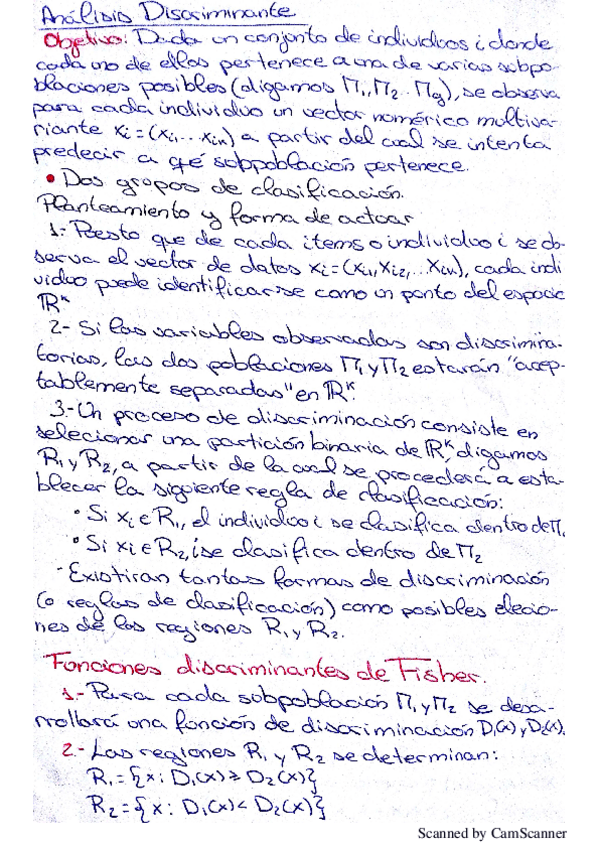 Análisis Discriminante
Objetivo: Dado un conjunto de individuos i donde
cada uno de ellos pertenece a una de varias subpo-
blaciones posibles (digamos Π₁, Π₂ .. Πg), se observa
para cada individuo un vector numérico multiva-
riante xi = (xi, ... xin) a partir del cual se intenta
predecir a qué subpoblación pertenece.
• Dos grupos de clasificación.
Planteamiento y forma de actuar
1.- Puesto que de cada items o individuo i se ob-
serva el vector de datos xi = (xi1, xi2, ... xin), cada indi
viduo puede identificarse como un punto del espacio
ℝᴷ
2- Si las variables observadas son discrimina-
torias, las dos poblaciones Π₁ y Π₂ estarán "acep-
tablemente separadas" en ℝᴷ.
3-Un proceso de discriminación consiste en
selecionar una partición binaria de ℝᴷ, digamos
R₁ y R₂, a partir de la cual se procederá a esta-
blecer la siguiente regla de clasificación:
• Si xi ∈ R₁, el individuo i se clasifica dentro de Π₁
• Si xi ∈ R₂, i se clasifica dentro de Π₂
- Existiran tantas formas de discriminación
(o reglas de clasificación) como posibles elecio-
nes de las regiones R₁ y R₂.
Funciones discriminantes de Fisher.
1.- Para cada subpoblación Π₁ y Π₂ se desa-
rrollará una función de discriminación D₁(x) y D₂(x).
2.- Las regiones R₁ y R₂ se determinan:
R₁ = {x : D₁(x) ≥ D₂(x)}
R₂ = {x : D₁(x) < D₂(x)}
Scanned by CamScanner